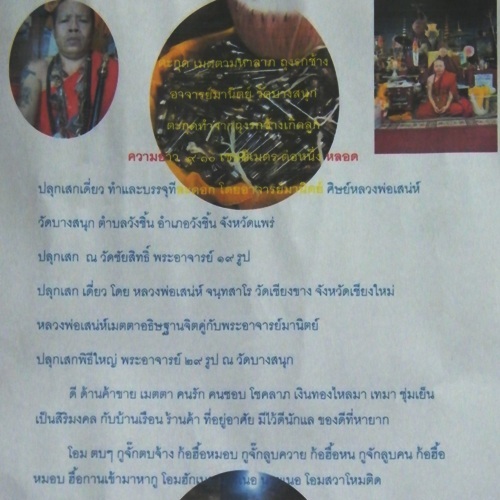 ตะกรุด เมตตามหาลาภ ถุงรกช้าง
อาจารย์มานิตย์ วัดบางสนุก
ตะกรุดทำจากถุงรกช้างเกิดลูก
ความยาว หลอด
ปลุกเสกเดี่ยว ทำและบรรจุที โดยอาจารย์มานิตย์ ศิษย์หลวงพ่อเสน่ห์
วัดบางสนุก ตำบลวังชิ้น อำเภอวังชิ้น จังหวัดแพร่
ปลุกเสก ณ วัดชัยสิทธิ์ พระอาจารย์ ๑๙ รูป
ปลุกเสก เดี่ยว โดย หลวงพ่อเสน่ห์ จนฺทสาโร วัดเชียงขาง จังหวัดเชียงใหม่
หลวงพ่อเสน่ห์เมตตาอธิษฐานจิตคู่กับพระอาจารย์มานิตย์
ปลุกเสกพิธีใหญ่ พระอาจารย์ ๒๙ รูป ณ วัดบางสนุก
ดี ด้านค้าขาย เมตตา คนรัก คนชอบ โชคลาภ เงินทองไหลมา เทมา ชุ่มเย็น
เป็นสิริมงคล กับบ้านเรือน ร้านค้า ที่อยู่อาศัย มีไว้ดีนักแล ของดีที่หายาก
โอม ตบๆ กูจั๊กตบจ้าง ก้อฮื้อหมอบ กูจั๊กลูบควาย ก้อฮื้อหน กูจักลูบคน ก้อฮื้อ
หมอบ ฮื้อกานเข้ามาหากู โอมฮัก โอมสวาโหมติด